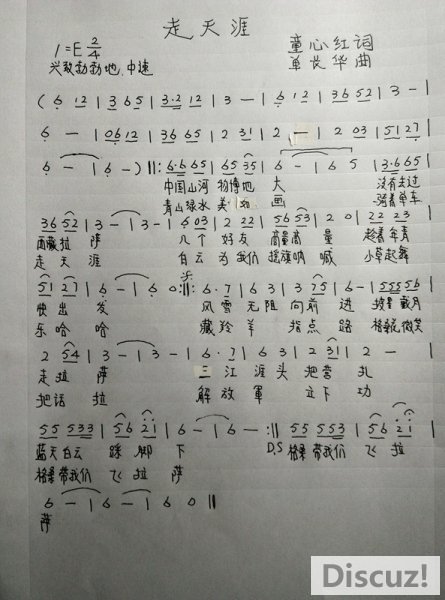 走天涯
1=E 2/4
童心红词
兴致勃勃地 中速
单长华曲
( 6 12 | 3 6 5 | 3·2 12 | 3 — | 6 12 | 3 6 5 2 | 3 — |
6 — | 0 6 12 | 3 6 3 6 | 6 5 | 2 3 1 | 2 — | 2 03 | 5 1 2 7 |
6 — | 6 — ) ‖: 6·6 65 | 65 35 | 6 — | 6 5 | 3·6 65 |
中国山河 物博地 大 没有去过
青山绿水 美 如 画 骑着单车
36 52 | 3 — | 3 — | 6 03 | 2 22 | 56 53 | 2 0 | 22 23 |
西藏拉 萨 几个好友 商量商 量 趁着年青
走天涯 白云为我们 摇旗呐 喊 小草起舞
51 27 | 6 — | 6 0 :‖: 6·7 | 6 3 | 3 75 | 6 — | 555 56 |
快出 发 风雪无阻 向前 进 披星戴月
乐哈 哈 藏羚羊 指点 路 格桑花微笑
2 54 | 3 — | 3 — | 6·7 | 63 1 | 2 31 | 2 — |
走拉 萨 三江源头 把营 扎
把话 拉 解放軍 立下 功
55 533 | 56 21 | 6 — | 6 — :‖ 55 553 | 56 21 |
蓝天白云 踩脚 下 D.S 格桑带我们 飞 拉
格桑带我们 飞拉 萨
6 — | 6 — | 6 — | 6 0 ‖
萨
Discuz!